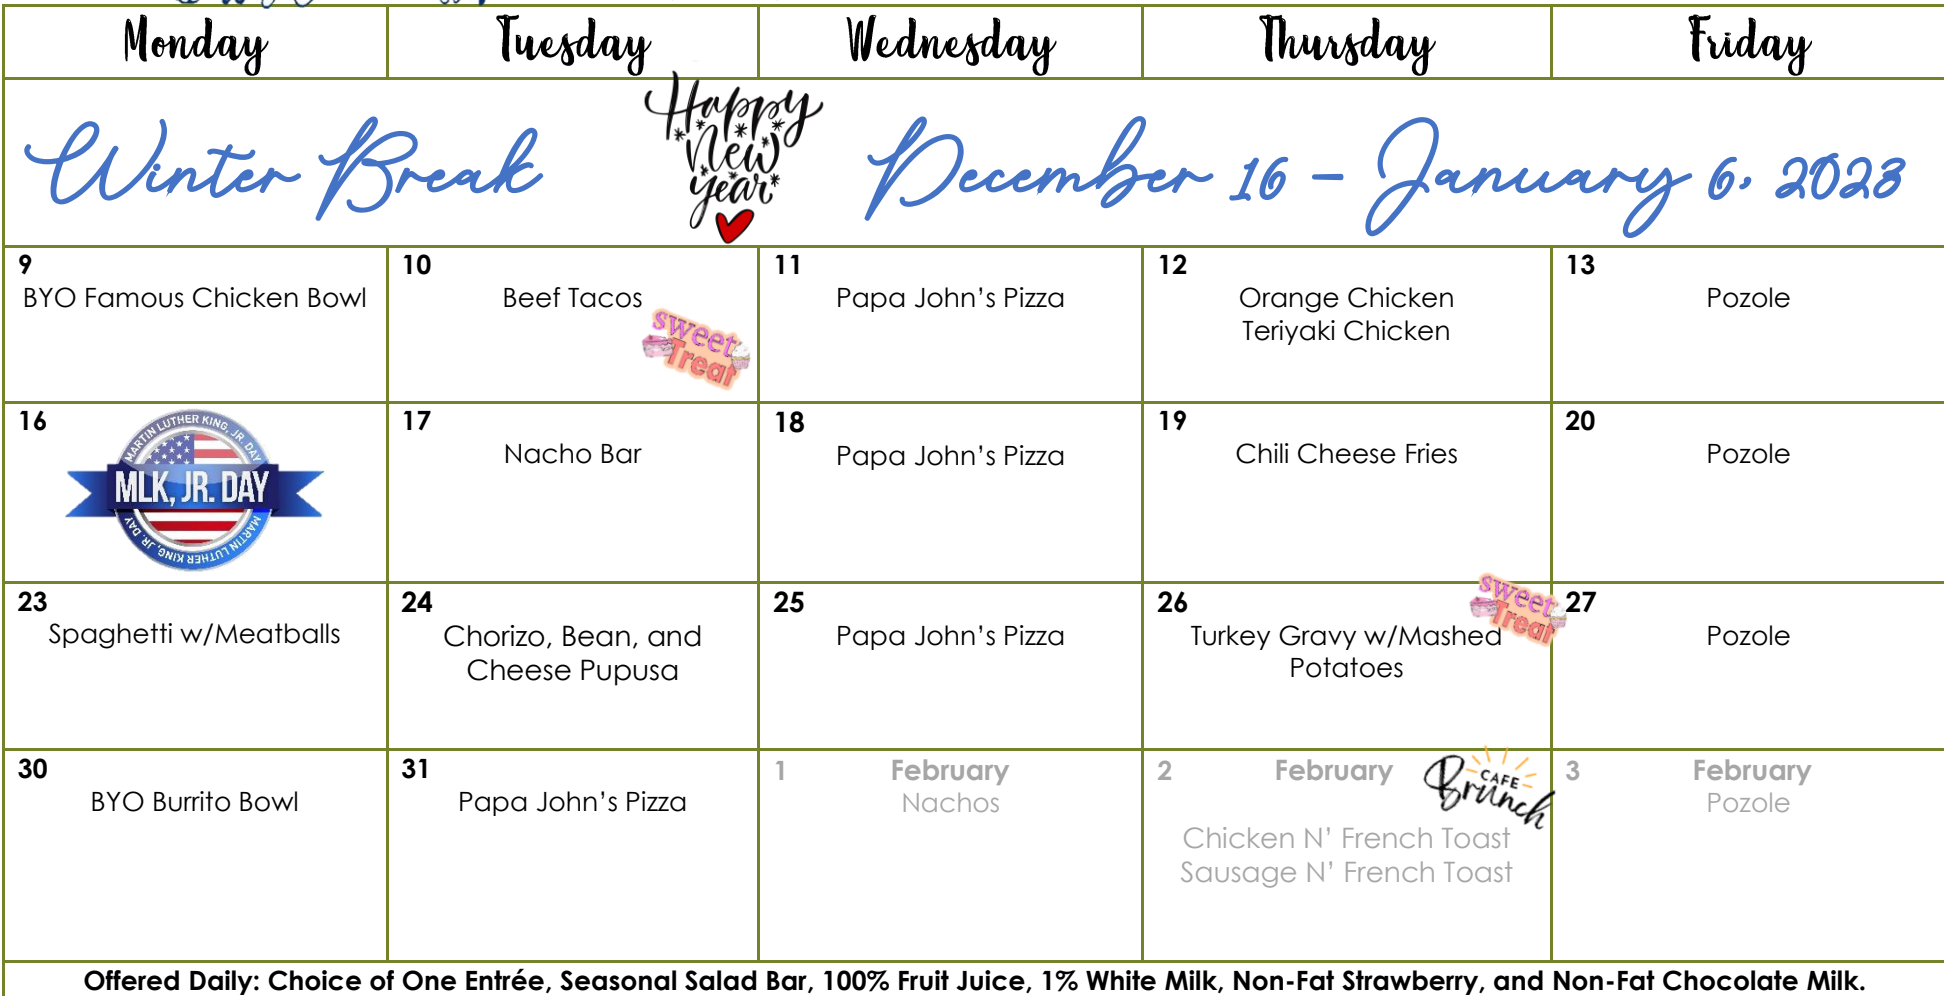 Monday
Tuesday
Wednesday
Thursday
Friday
Winter Break
Happy
New
year
December 16 – January 6, 2023
9
BYO Famous Chicken Bowl
10
Beef Tacos
sweet
Treat
11
Papa John's Pizza
12
Orange Chicken
Teriyaki Chicken
13
Pozole
16
MARTIN LUTHER KING, JR. DAY
MLK, JR. DAY
MARTIN LUTHER KING, JR. DAY
17
Nacho Bar
18
Papa John's Pizza
19
Chili Cheese Fries
20
Pozole
23
Spaghetti w/Meatballs
24
Chorizo, Bean, and
Cheese Pupusa
25
Papa John's Pizza
26
sweet
Treat
Turkey Gravy w/Mashed
Potatoes
27
Pozole
30
BYO Burrito Bowl
31
Papa John's Pizza
1 February
Nachos
2 February
CAFE
Brunch
Chicken N' French Toast
Sausage N' French Toast
3 February
Pozole
Offered Daily: Choice of One Entrée, Seasonal Salad Bar, 100% Fruit Juice, 1% White Milk, Non-Fat Strawberry, and Non-Fat Chocolate Milk.